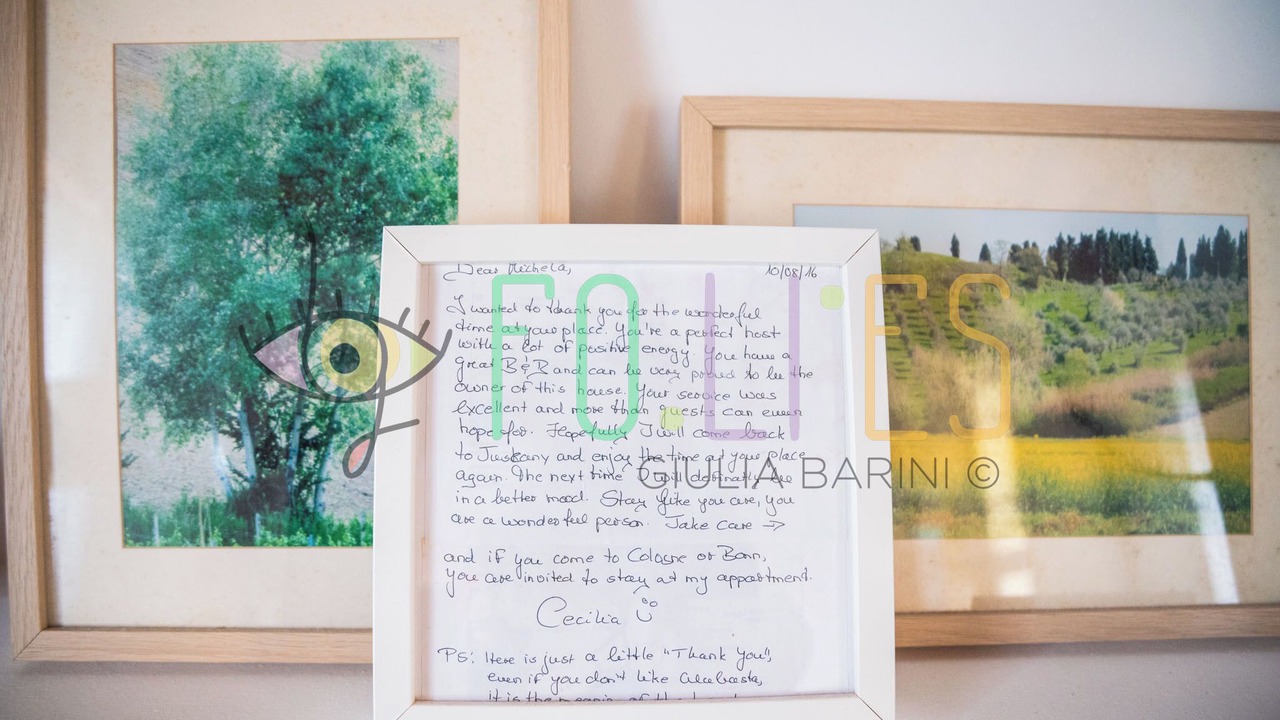 Dear Michela,
10/08/16
I wanted to thank you for the wonderful
time at your place. You're a perfect host
with a lot of positive energy. You have a
great B&B and can be very proud to be the
owner of this house. Your service was
excellent and more than guests can even
hope for. Hopefully I will come back
to Tuskany and enjoy the time at your place
again. The next time I will be
in a better mood. Stay like you are, you
are a wonderful person. Take care →
and if you come to Cologne or Bonn,
you are invited to stay at my appartment.
Cecilia
PS: Here is just a little "Thank You",
even if you don't like
it is the of the
FOLIES
GIULIA BARINI ©